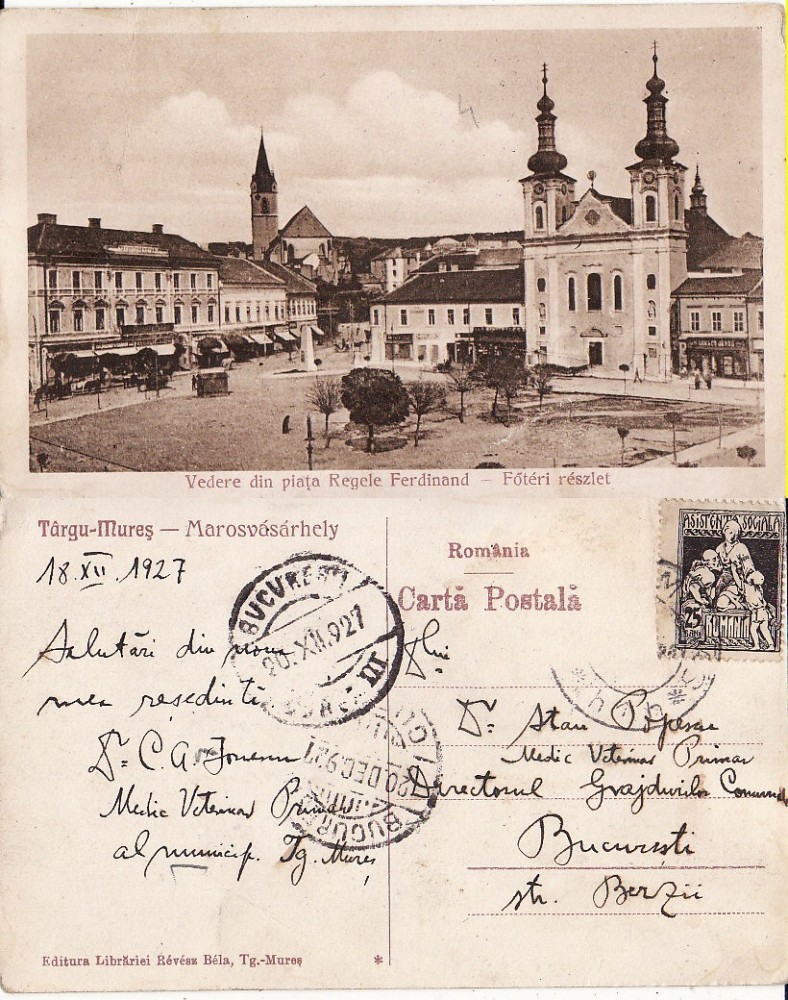 Vedere din piaţa Regele Ferdinand – Főtéri részlet
Târgu-Mureş — Marosvásárhely
18.XII.1927
Salutări din noua
mea reşedinţă
Dr. C. G. Ionescu
Medic Veterinar Primar
al municip. Tg. Mureş
Editura Librăriei Révész Béla, Tg.-Mureş
*
România
Carta Postală
ASISTENŢA SOCIALA
25
BANI
ROMANIA
BUCUREŞTI
20.XII.927
III
20 DEC 927
BUCUR
Dlui
Dr. Stan Popescu
Medic Veterinar Primar
Directorul Grajdurilor Comunale
Bucureşti
str. Berzii